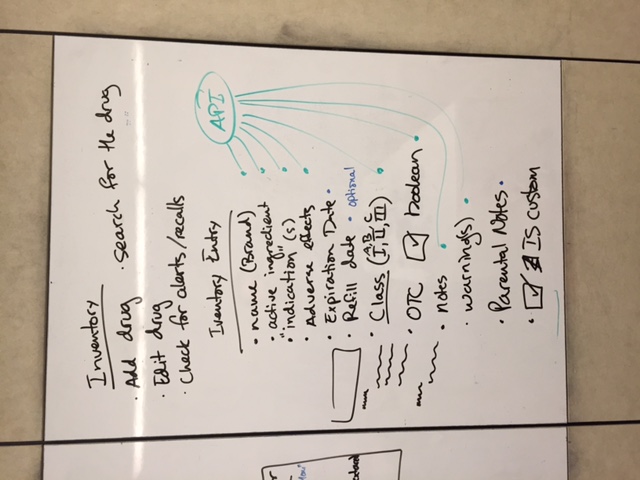 Inventory
· Add drug · search for the drug
· Edit drug
· Check for alerts/recalls
Iventory Entry
API
• name (Brand)
• active ingredient
• "indication" (s)
• Adverse effects
• Expiration Date •
• Refill date • optional
• Class (I, II, III)
A, B, C
• OTC ☑ boolean
• notes
• warning(s)
• Parental Notes •
• ☑ IS custom